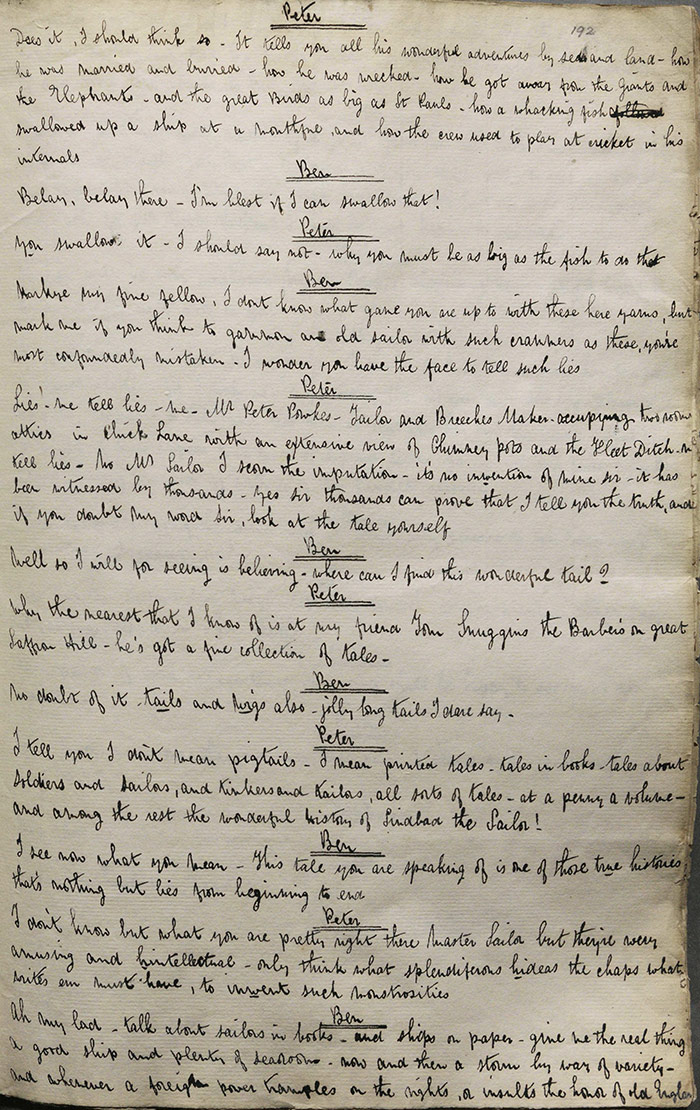 Peter
192
Does it, I should think so - It tells you all his wonderful adventures by sea and land - how
he was married and buried - how he was wrecked - how he got away from the Giants and
the Elephants - and the great Birds as big as St Pauls - how a whacking fish
swallowed up a ship at a mouthful, and how the crew used to play at cricket in his
internals
Ben
Belay, belay there - I'm blest if I can swallow that!
Peter
You swallow it - I should say not - why you must be as big as the fish to do that
Ben
Harkye my fine fellow, I dont know what game you are up to with these here yarns, but
mark me if you think to gammon an old sailor with such crammers as these, you're
most confoundedly mistaken - I wonder you have the face to tell such lies
Peter
Lies! me tell lies - me - Mr Peter Powkes - Tailor and Breeches Maker - occupying two room
attics in Chick Lane with an extensive view of Chimney pots and the Fleet Ditch - me
tell lies - No Mr Sailor I scorn the imputation - it's no inwention of mine sir - it has
been witnessed by thousands - yes sir thousands can prove that I tell you the truth, and
if you doubt my word Sir, look at the tale yourself
Ben
Well so I will for seeing is believing - where can I find this wonderful tail?
Peter
Why the nearest that I know of is at my friend Tom Snuggins the Barber's on great
Saffron Hill - he's got a fine collection of tales -
Ben
No doubt of it - tails and wigs also - jolly long tails I dare say -
Peter
I tell you I don't mean pigtails - I mean printed tales - tales in books - tales about
Soldiers and Sailors, and tinkers and tailors, all sorts of tales - at a penny a volume -
and among the rest the wonderful history of Sindbad the Sailor!
Ben
I see now what you mean - This tale you are speaking of is one of those true histories
thats nothing but lies from beginning to end
Peter
I don't know but what you are pretty right there Master Sailor but they're wery
amusing and hintellectual - only think what splendiferous hideas the chaps what
writes em must have, to inwent such monstrosities
Ben
Ah my lad - talk about sailors in books - and ships on paper - give me the real thing
a good ship and plenty of searoom - now and then a storm by way of variety -
and whenever a foreign power tramples on the rights, or insults the honor of old England